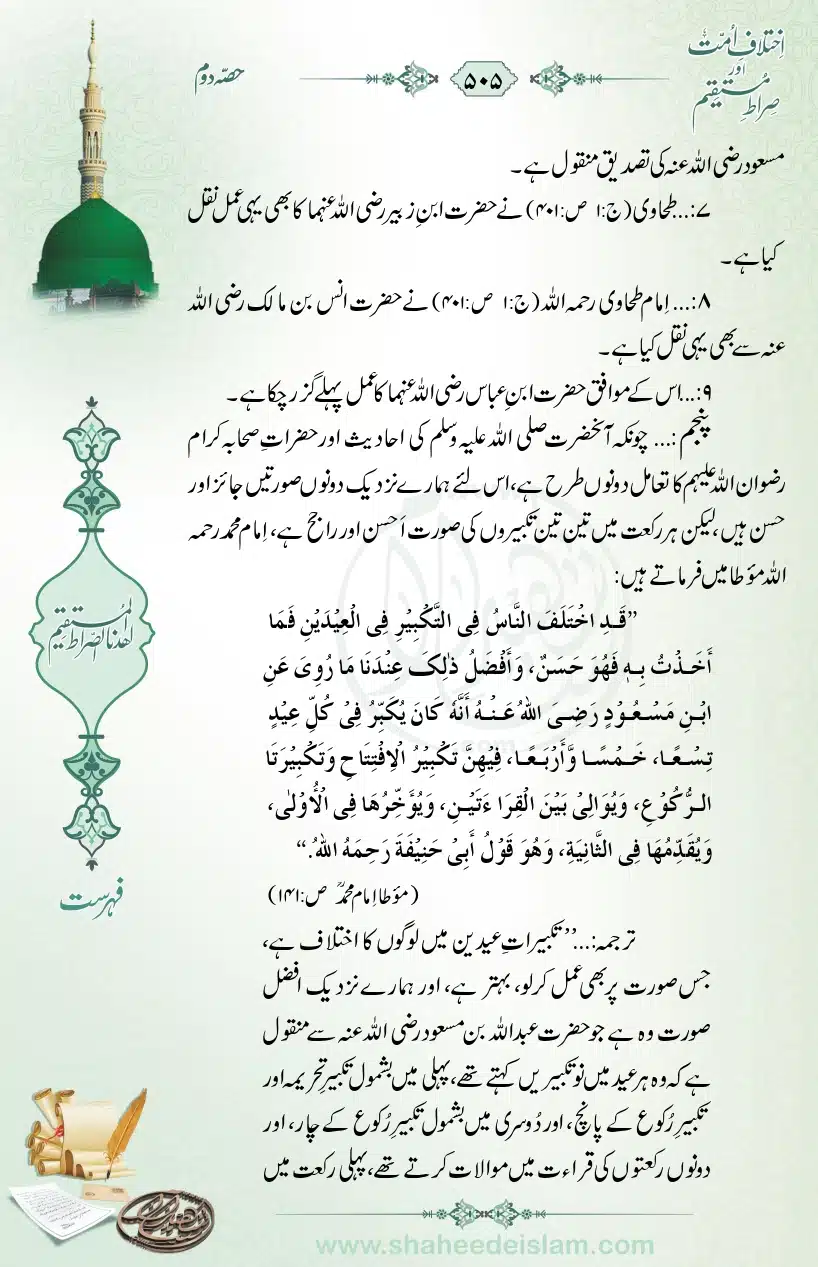 اِختلافِ اُمّت
اور
صِراطِ مُستقیم
۵۰۵
حصّہ دوم
مسعود رضی اللہ عنہ کی تصدیق منقول ہے۔
۷:...طحاوی (ج:۱ ص:۴۰۱) نے حضرت ابنِ زبیر رضی اللہ عنہما کا بھی یہی عمل نقل
کیا ہے۔
۸:... اِمام طحاوی رحمہ اللہ (ج:۱ ص:۴۰۱) نے حضرت انس بن مالک رضی اللہ
عنہ سے بھی یہی نقل کیا ہے۔
۹:...اس کے موافق حضرت ابنِ عباس رضی اللہ عنہما کا عمل پہلے گزر چکا ہے۔
پنجم:... چونکہ آنحضرت صلی اللہ علیہ وسلم کی احادیث اور حضراتِ صحابہ کرام
رضوان اللہ علیہم کا تعامل دونوں طرح ہے، اس لئے ہمارے نزدیک دونوں صورتیں جائز اور
حسن ہیں، لیکن ہر رکعت میں تین تین تکبیروں کی صورت اَحسن اور راجح ہے، اِمام محمد رحمہ
اللہ مؤطا میں فرماتے ہیں:
”قَدِ اخْتَلَفَ النَّاسُ فِی التَّکْبِیْرِ فِی الْعِیْدَیْنِ فَمَا
أَخَذْتُ بِہٖ فَھُوَ حَسَنٌ، وَأَفْضَلُ ذٰلِکَ عِنْدَنَا مَا رُوِیَ عَنِ
ابْنِ مَسْعُوْدٍ رَضِیَ اللهُ عَنْہُ أَنَّہٗ کَانَ یُکَبِّرُ فِیْ کُلِّ عِیْدٍ
تِسْعًا، خَمْسًا وَّأَرْبَعًا، فِیْھِنَّ تَکْبِیْرُ الْاِفْتِتَاحِ وَتَکْبِیْرَتَا
الرُّکُوْعِ، وَیُوَالِیْ بَیْنَ الْقِرَاءَتَیْنِ، وَیُؤَخِّرُھَا فِی الْأُوْلٰی،
وَیُقَدِّمُھَا فِی الثَّانِیَةِ، وَھُوَ قَوْلُ أَبِیْ حَنِیْفَةَ رَحِمَہُ اللهُ.“
(مؤطا اِمام محمدؒ ص:۱۴۱)
ترجمہ:...”تکبیراتِ عیدین میں لوگوں کا اختلاف ہے،
جس صورت پر بھی عمل کرلو، بہتر ہے، اور ہمارے نزدیک افضل
صورت وہ ہے جو حضرت عبداللہ بن مسعود رضی اللہ عنہ سے منقول
ہے کہ وہ ہر عید میں نو تکبیریں کہتے تھے، پہلی میں بشمول تکبیرِ تحریمہ اور
تکبیرِ رُکوع کے پانچ، اور دُوسری میں بشمول تکبیرِ رُکوع کے چار، اور
دونوں رکعتوں کی قراءت میں موالات کرتے تھے، پہلی رکعت میں
اھدنا الصراط المستقیم
فہرست
www.shaheedeislam.com